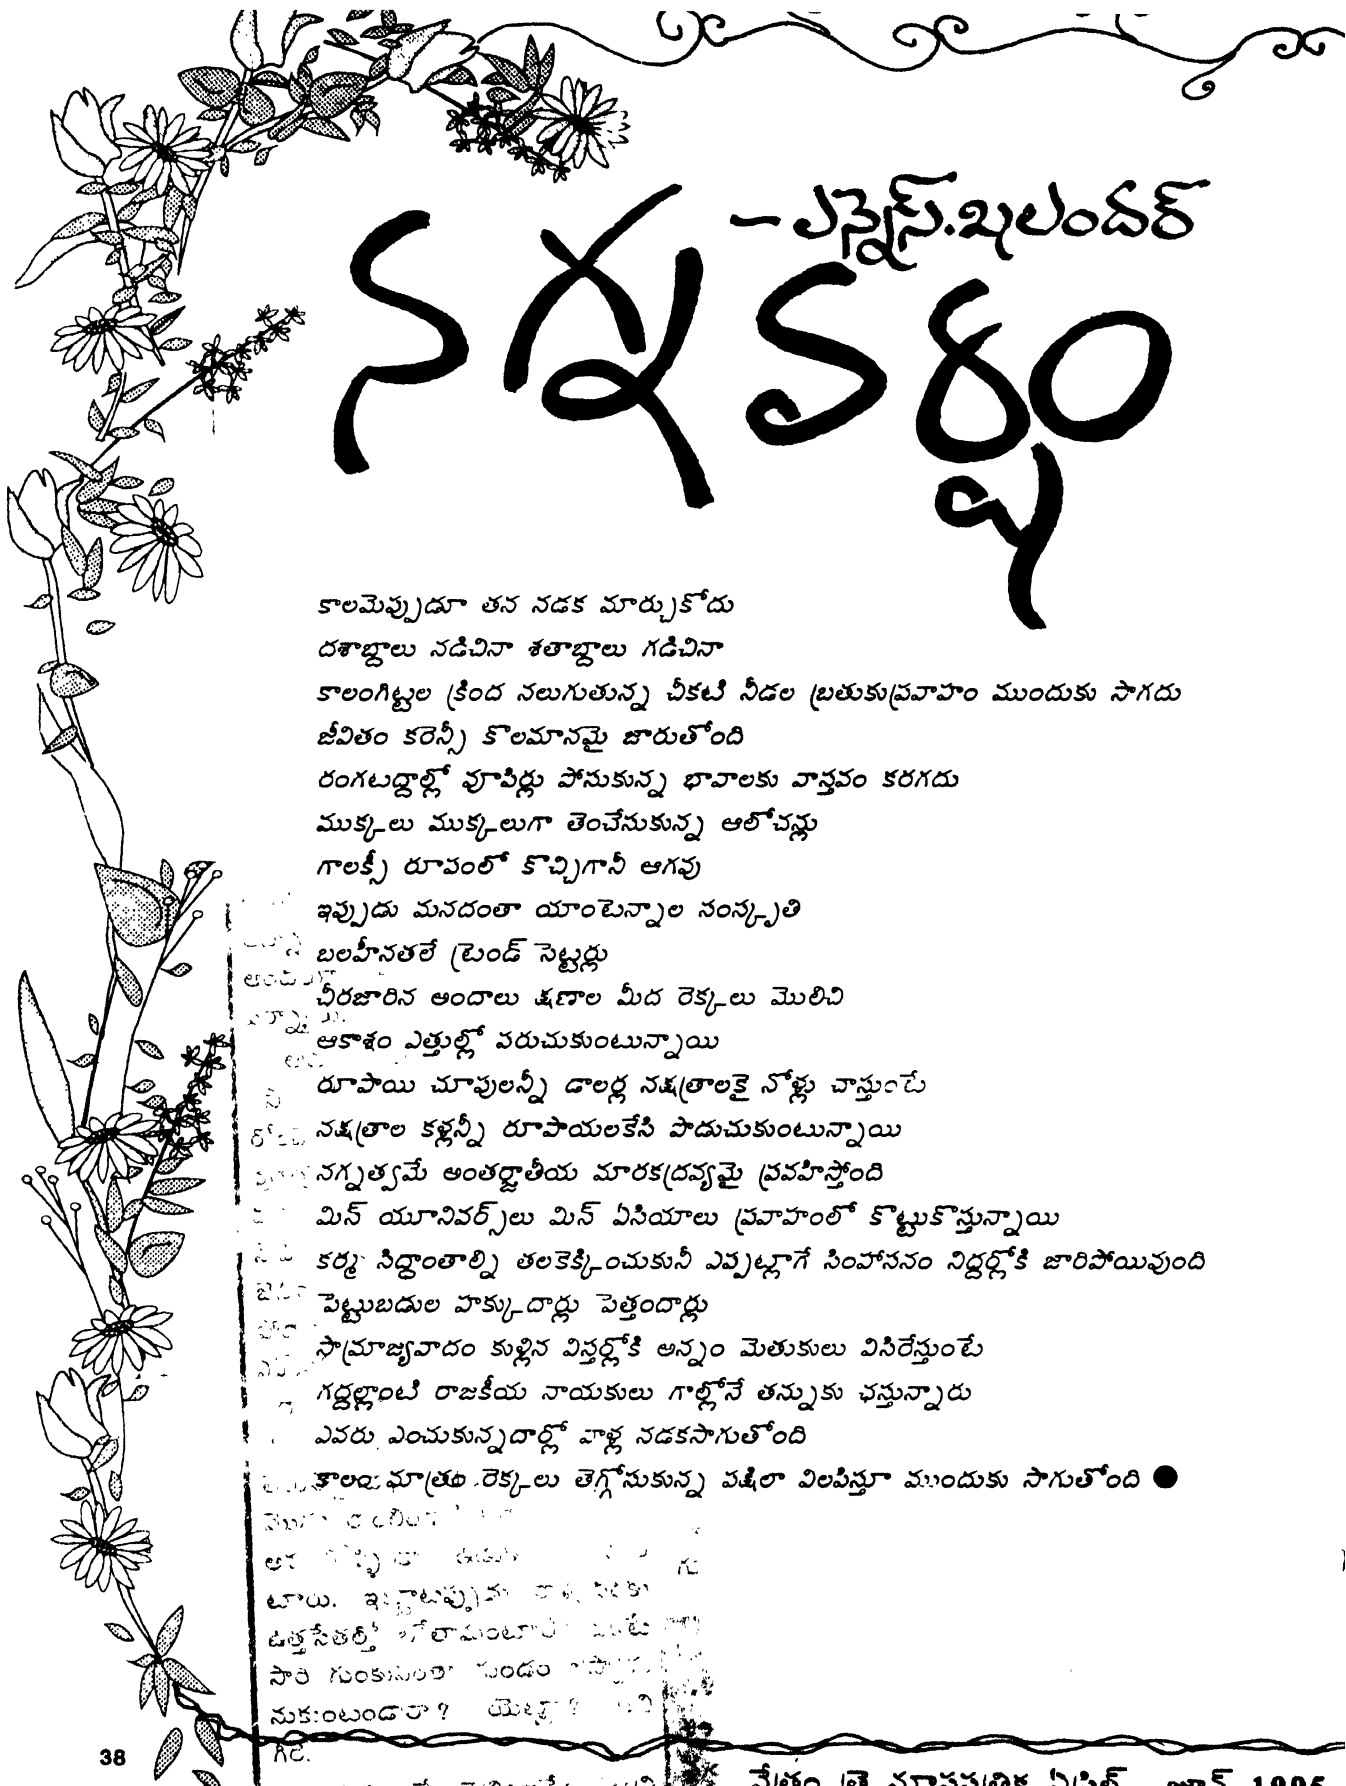 - ఎన్నెస్.ఖలందర్
నగ్న వర్షం
కాలమెప్పుడూ తన నడక మార్చుకోదు
దశాబ్దాలు నడిచినా శతాబ్దాలు గడిచినా
కాలంగిట్టల క్రింద నలుగుతున్న చీకటి నీడల బ్రతుకుప్రవాహం ముందుకు సాగదు
జీవితం కరెన్సీ కొలమానమై జారుతోంది
రంగటద్దాల్లో వూపిర్లు పోసుకున్న భావాలకు వాస్తవం కరగదు
ముక్కలు ముక్కలుగా తెంచేసుకున్న ఆలోచన్లు
గాలక్సీ రూపంలో కొచ్చిగానీ ఆగవు
ఇప్పుడు మనదంతా యాంటెన్నాల సంస్కృతి
బలహీనతలే ట్రెండ్ సెట్టర్లు
చీరజారిన అందాలు క్షణాల మీద రెక్కలు మొలిచి
ఆకాశం ఎత్తుల్లో పరుచుకుంటున్నాయి
రూపాయి చూపులన్నీ డాలర్ల నక్షత్రాలకై నోళ్లు చాస్తుంటే
నక్షత్రాల కళ్లన్నీ రూపాయలకేసి పొడుచుకుంటున్నాయి
నగ్నత్వమే అంతర్జాతీయ మారకద్రవ్యమై ప్రవహిస్తోంది
మిస్ యూనివర్స్‌లు మిస్ ఏసియాలు ప్రవాహంలో కొట్టుకొస్తున్నాయి
కర్మ సిద్ధాంతాల్ని తలకెక్కించుకునీ ఎప్పట్లాగే సింహాసనం నిద్దర్లోకి జారిపోయివుంది
పెట్టుబడుల హక్కుదార్లు పెత్తందార్లు
సామ్రాజ్యవాదం కుళ్లిన విస్తర్లోకి అన్నం మెతుకులు విసిరేస్తుంటే
గద్దల్లాంటి రాజకీయ నాయకులు గాల్లోనే తన్నుకు ఛస్తున్నారు
ఎవరు ఎంచుకున్నదార్లో వాళ్ల నడకసాగుతోంది
కాలం మాత్రం రెక్కలు తెగ్గోసుకున్న పక్షిలా విలపిస్తూ ముందుకు సాగుతోంది ●
38